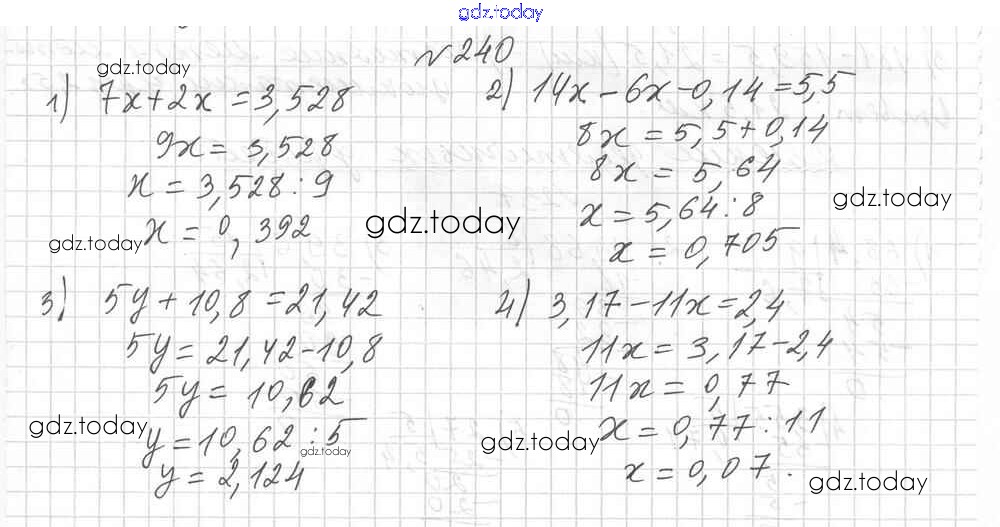 gdz.today
№240
gdz.today
1) 7x+2x=3,528
9x=3,528
x=3,528:9
x=0,392
gdz.today
2) 14x-6x-0,14=5,5
8x=5,5+0,14
8x=5,64
x=5,64:8
x=0,705
gdz.today
gdz.today
3) 5y+10,8=21,42
5y=21,42-10,8
5y=10,62
y=10,62:5
y=2,124
gdz.today
gdz.today
4) 3,17-11x=2,4
11x=3,17-2,4
11x=0,77
x=0,77:11
x=0,07.
gdz.today
gdz.today